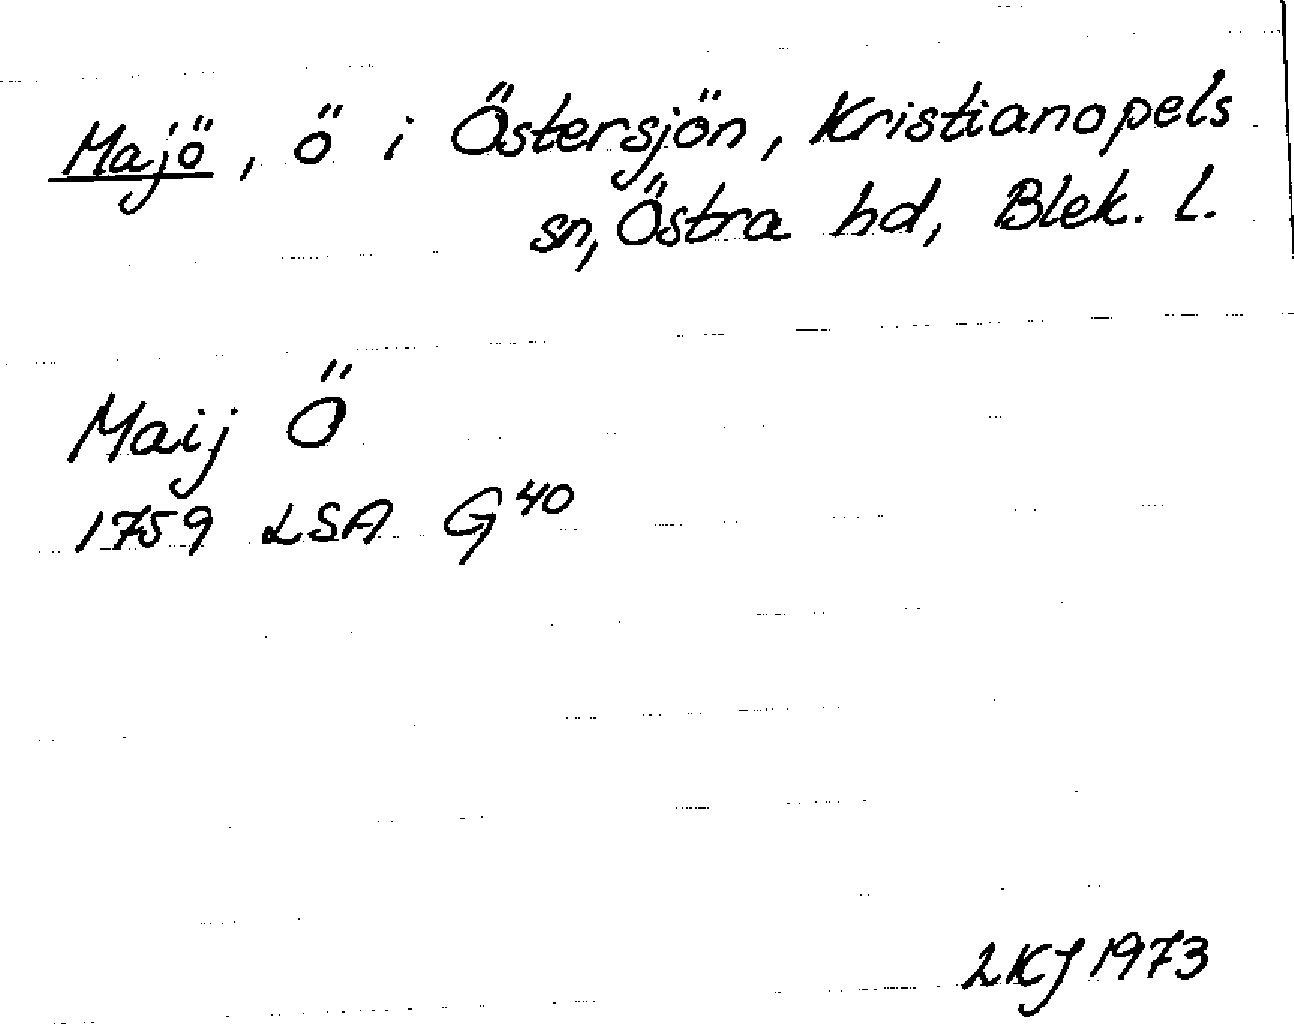 Majö, ö i Östersjön, Kristianopels
sn, Östra hd, Blek. l.
Maij Ö
1759 LSA G40
LKJ 1973